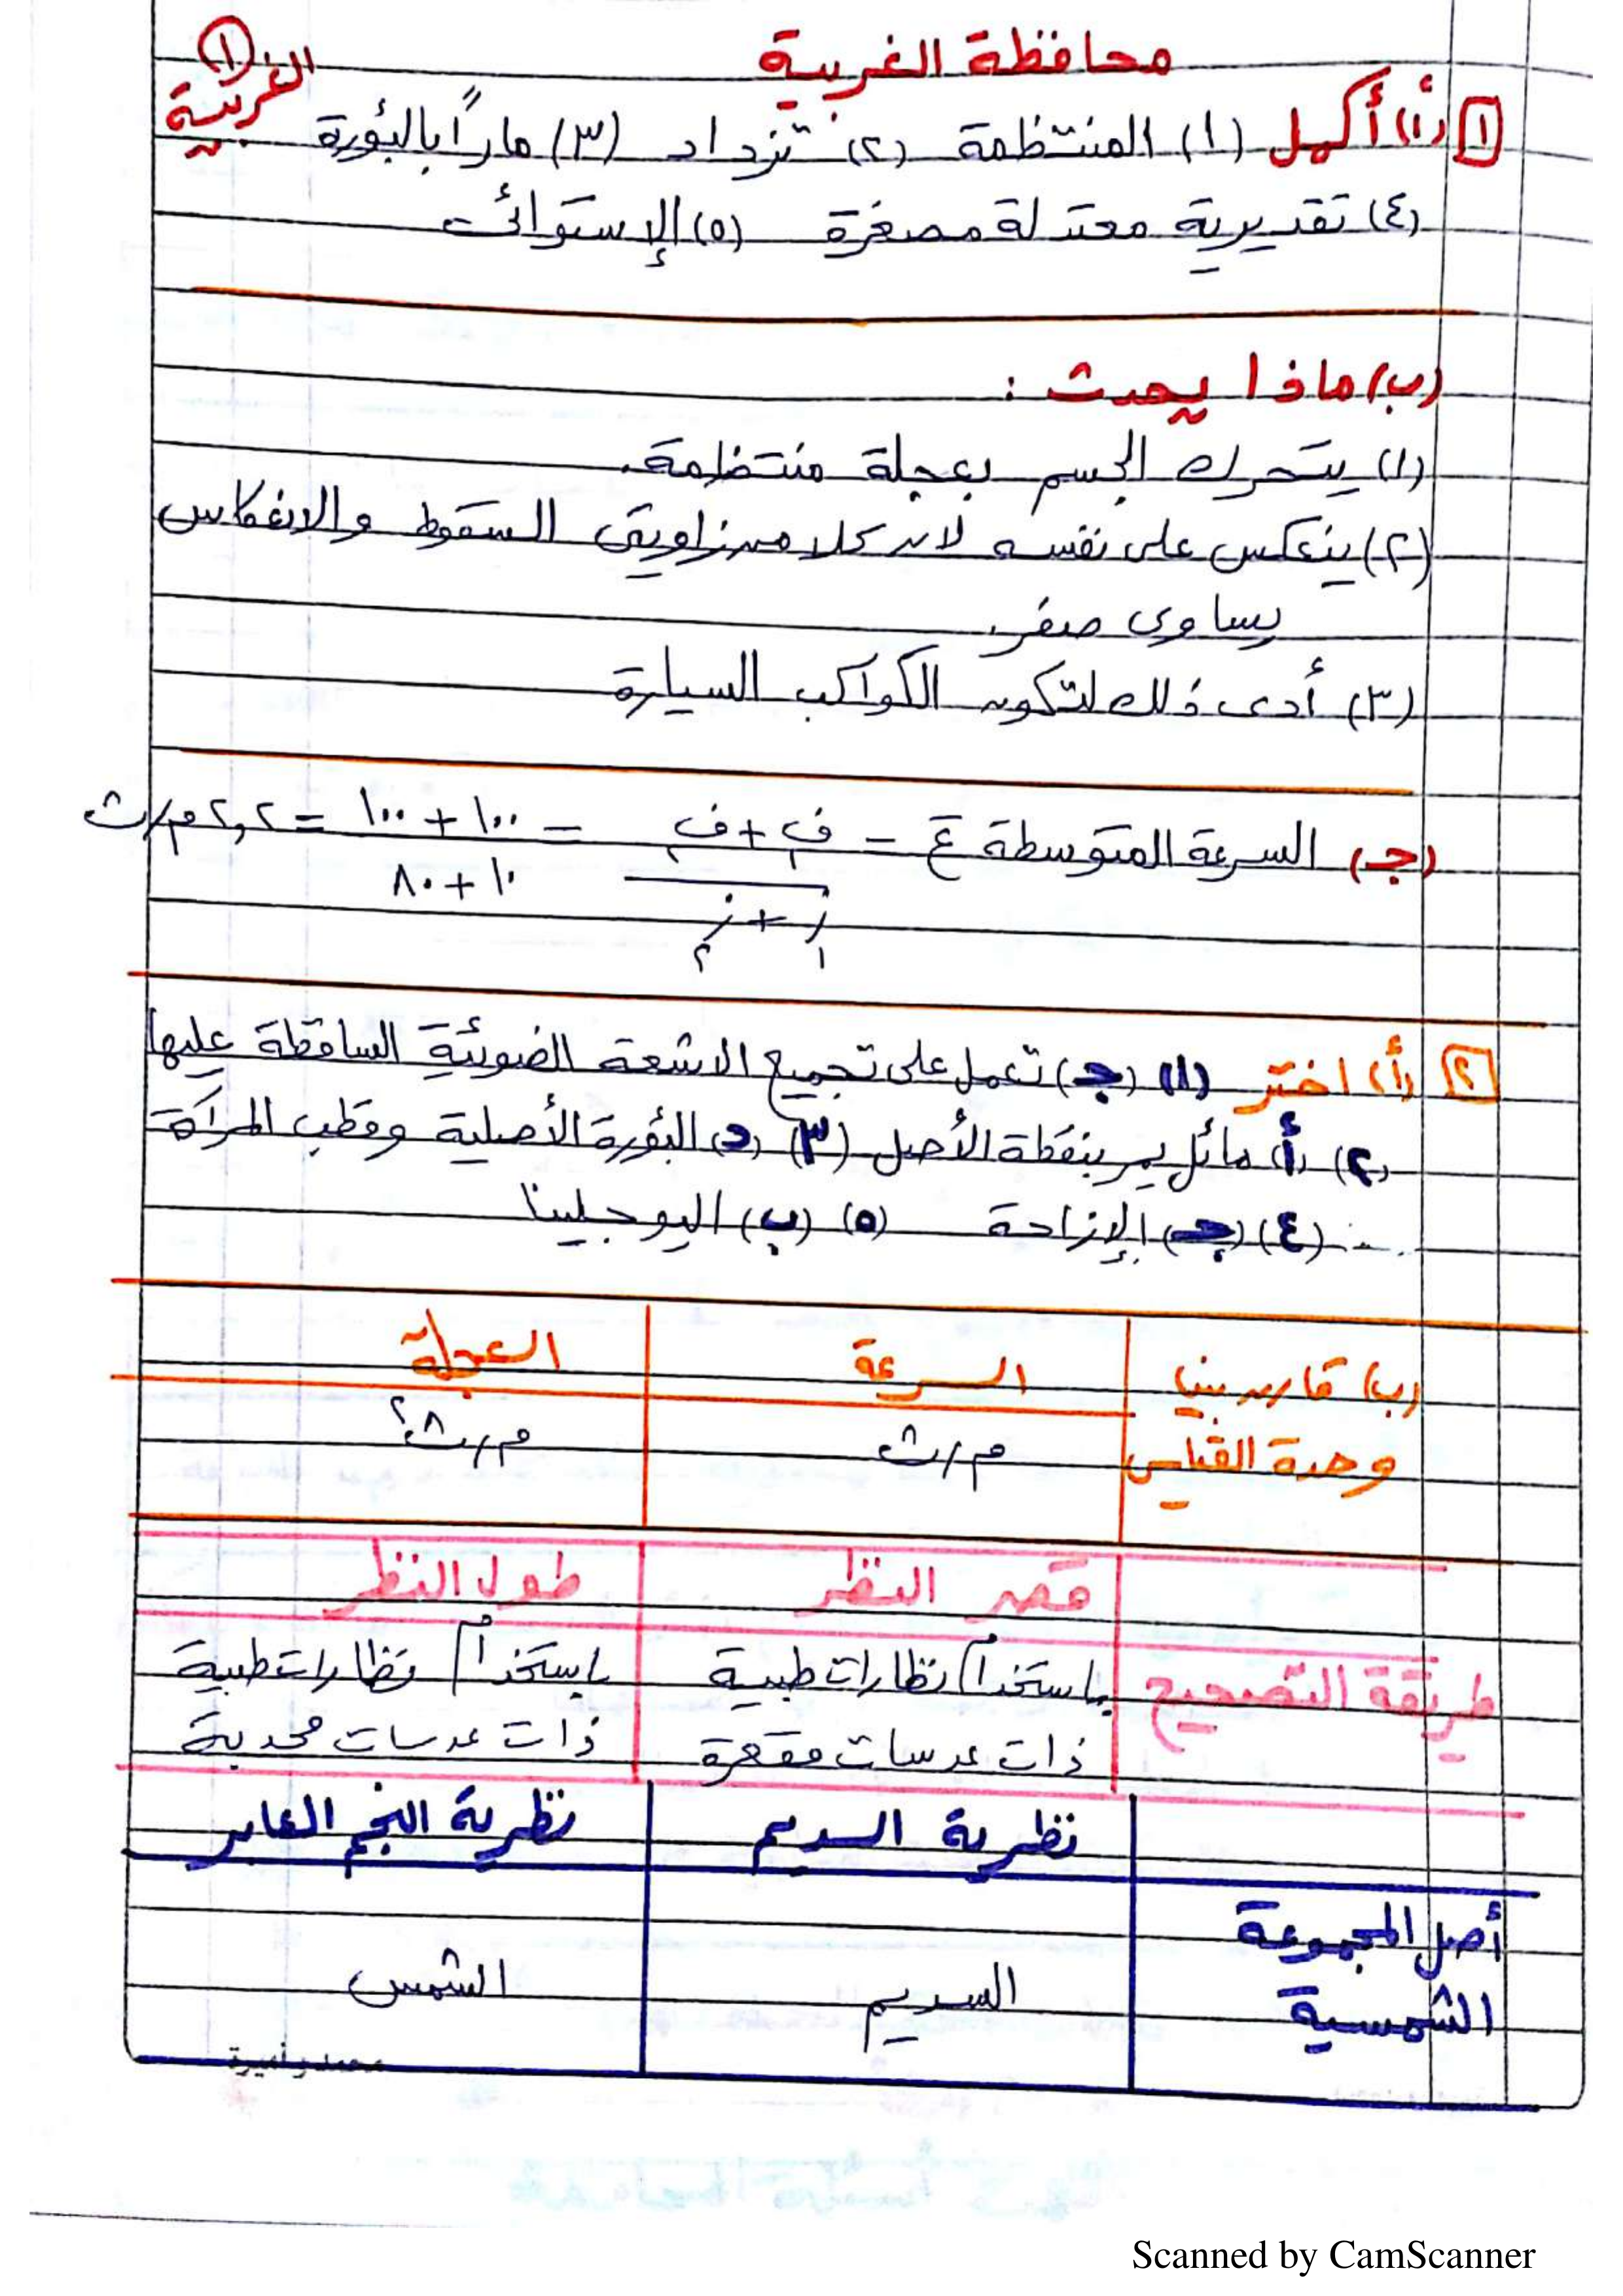 محافظة الغربية
(١) الغربية
١ (أ) أكمل (١) المنتظمة (٢) تزداد (٣) ماراً بالبؤرة
(٤) تقديرية معتدلة مصغرة (٥) الإستوائى
(ب) ماذا يحدث :
(١) يتحرك الجسم بعجلة منتظمة.
(٢) ينعكس على نفسه لان كلا من زاويتى السقوط والانعكاس
يساوى صفر
(٣) أدى ذلك لتكون الكواكب السيارة
(جـ) السرعة المتوسطة ع = ف١ + ف٢ / ز١ + ز٢ = ١٠٠ + ١٠٠ / ١٠ + ٨٠ = ٢,٢ م/ث
٢ (أ) اختر (١) (جـ) تعمل على تجميع الاشعة الضوئية الساقطة عليها
(٢) (أ) مائل يمر بنقطة الأصل (٣) (د) البؤرة الأصلية وقطب المرآة
(٤) (جـ) الإزاحة (٥) (ب) اليوجلينا
(ب) قارن بين السرعة العجلة
وحدة القياس م/ث م/ث٢
قصر النظر طول النظر
طريقة التصحيح باستخدام نظارات طبية باستخدام نظارات طبية
ذات عدسات مقعرة ذات عدسات محدبة
نظرية السديم نظرية النجم العابر
أصل المجموعة
الشمسية السديم الشمس
محمد و أميرة
Scanned by CamScanner